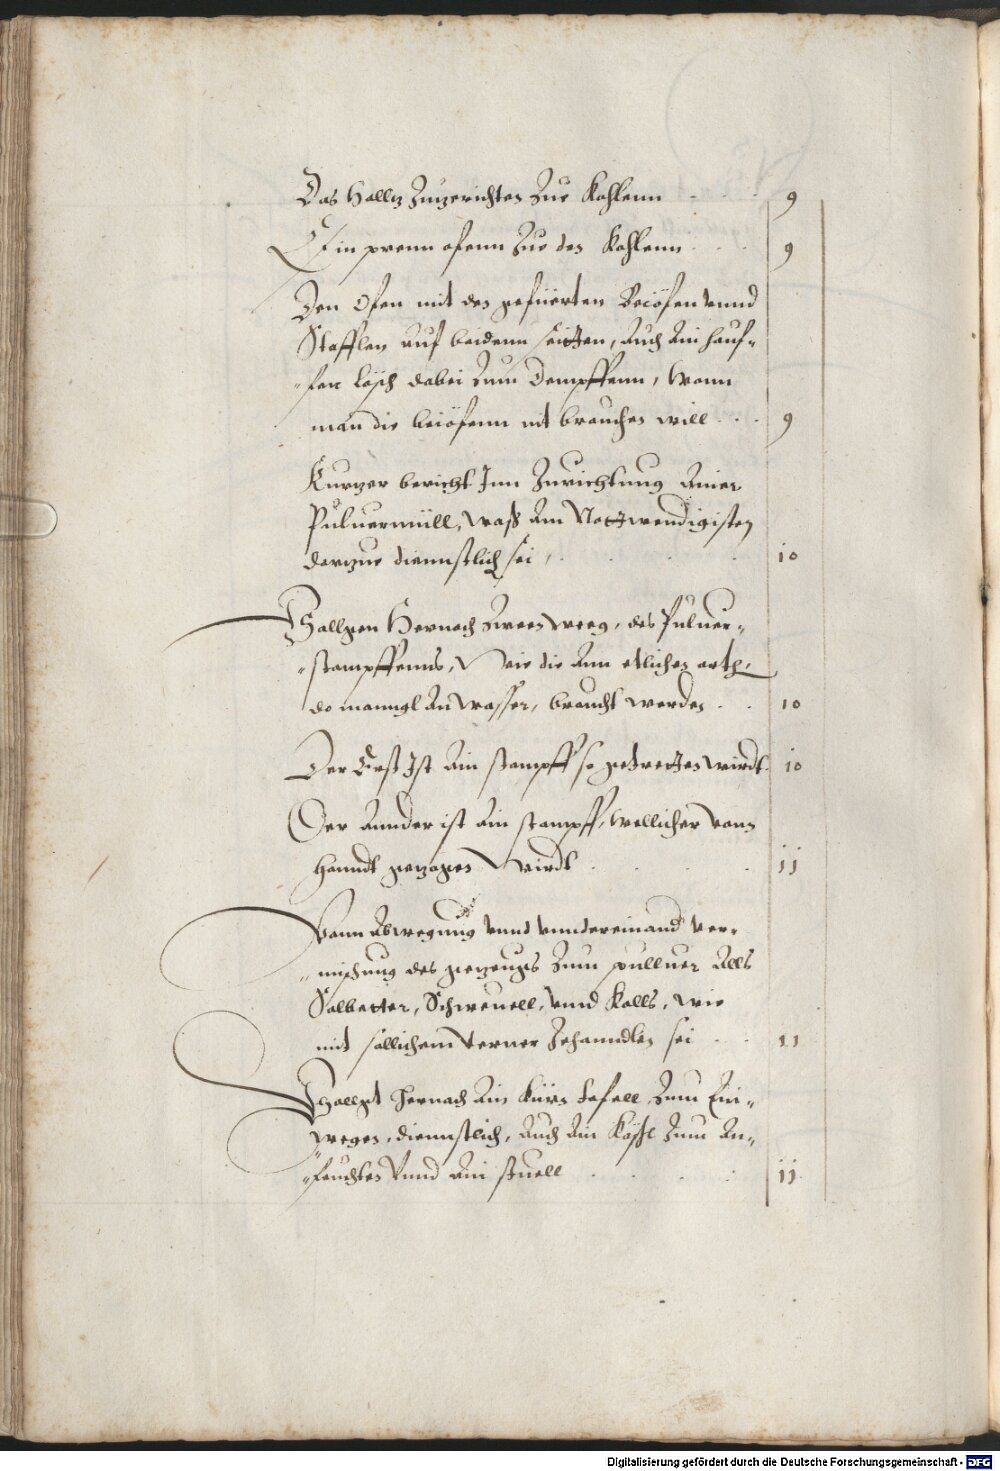 Das Holltz Zuzerichten Zue Kohlenn . . . 9
Ein prenn ofenn Zue den Kohlenn . . . 9
Den Ofen mit den gefüerten Beiöfen vnnd
Stafflen auf beidenn seitten, auch ain hauf-
-fen lösch dabei Zum dempffenn, Wann
man die beiöfenn nit brauchen will . . . 9
Kurtzer bericht Inn Zurichtung Ainer
Puluermüll, waß Am Nottwendigisten
dartzue diennstlich sei, . . . 10
Vollgen Hernach Zween weeg, des Puluer-
-stampffenns, Wie die Ann etlichen orth,
do manngl An Wasser, braucht werden . . 10
Der Erst Ist Ain stampff so getretten wirdt. 10
Der Annder ist Ain stampff, Wellicher vonn
hanndt getzogen Wirdt . . . . 11
Vonn Abwegung vnnd vnntereinand ver-
-mischung des getzeugs Zum pulluer Alls
Salbetter, Schweuell, vnnd Kolls, wie
mit sollichem verner Zehanndlen sei . . 11
Vollget hernach Ain Kürn Tafell Zum Ein-
-wegen, diennstlich, auch Ain Kössl Zum An-
-feuchten vnnd Ain stuell . . . . 11
Digitalisierung gefördert durch die Deutsche Forschungsgemeinschaft - DFG